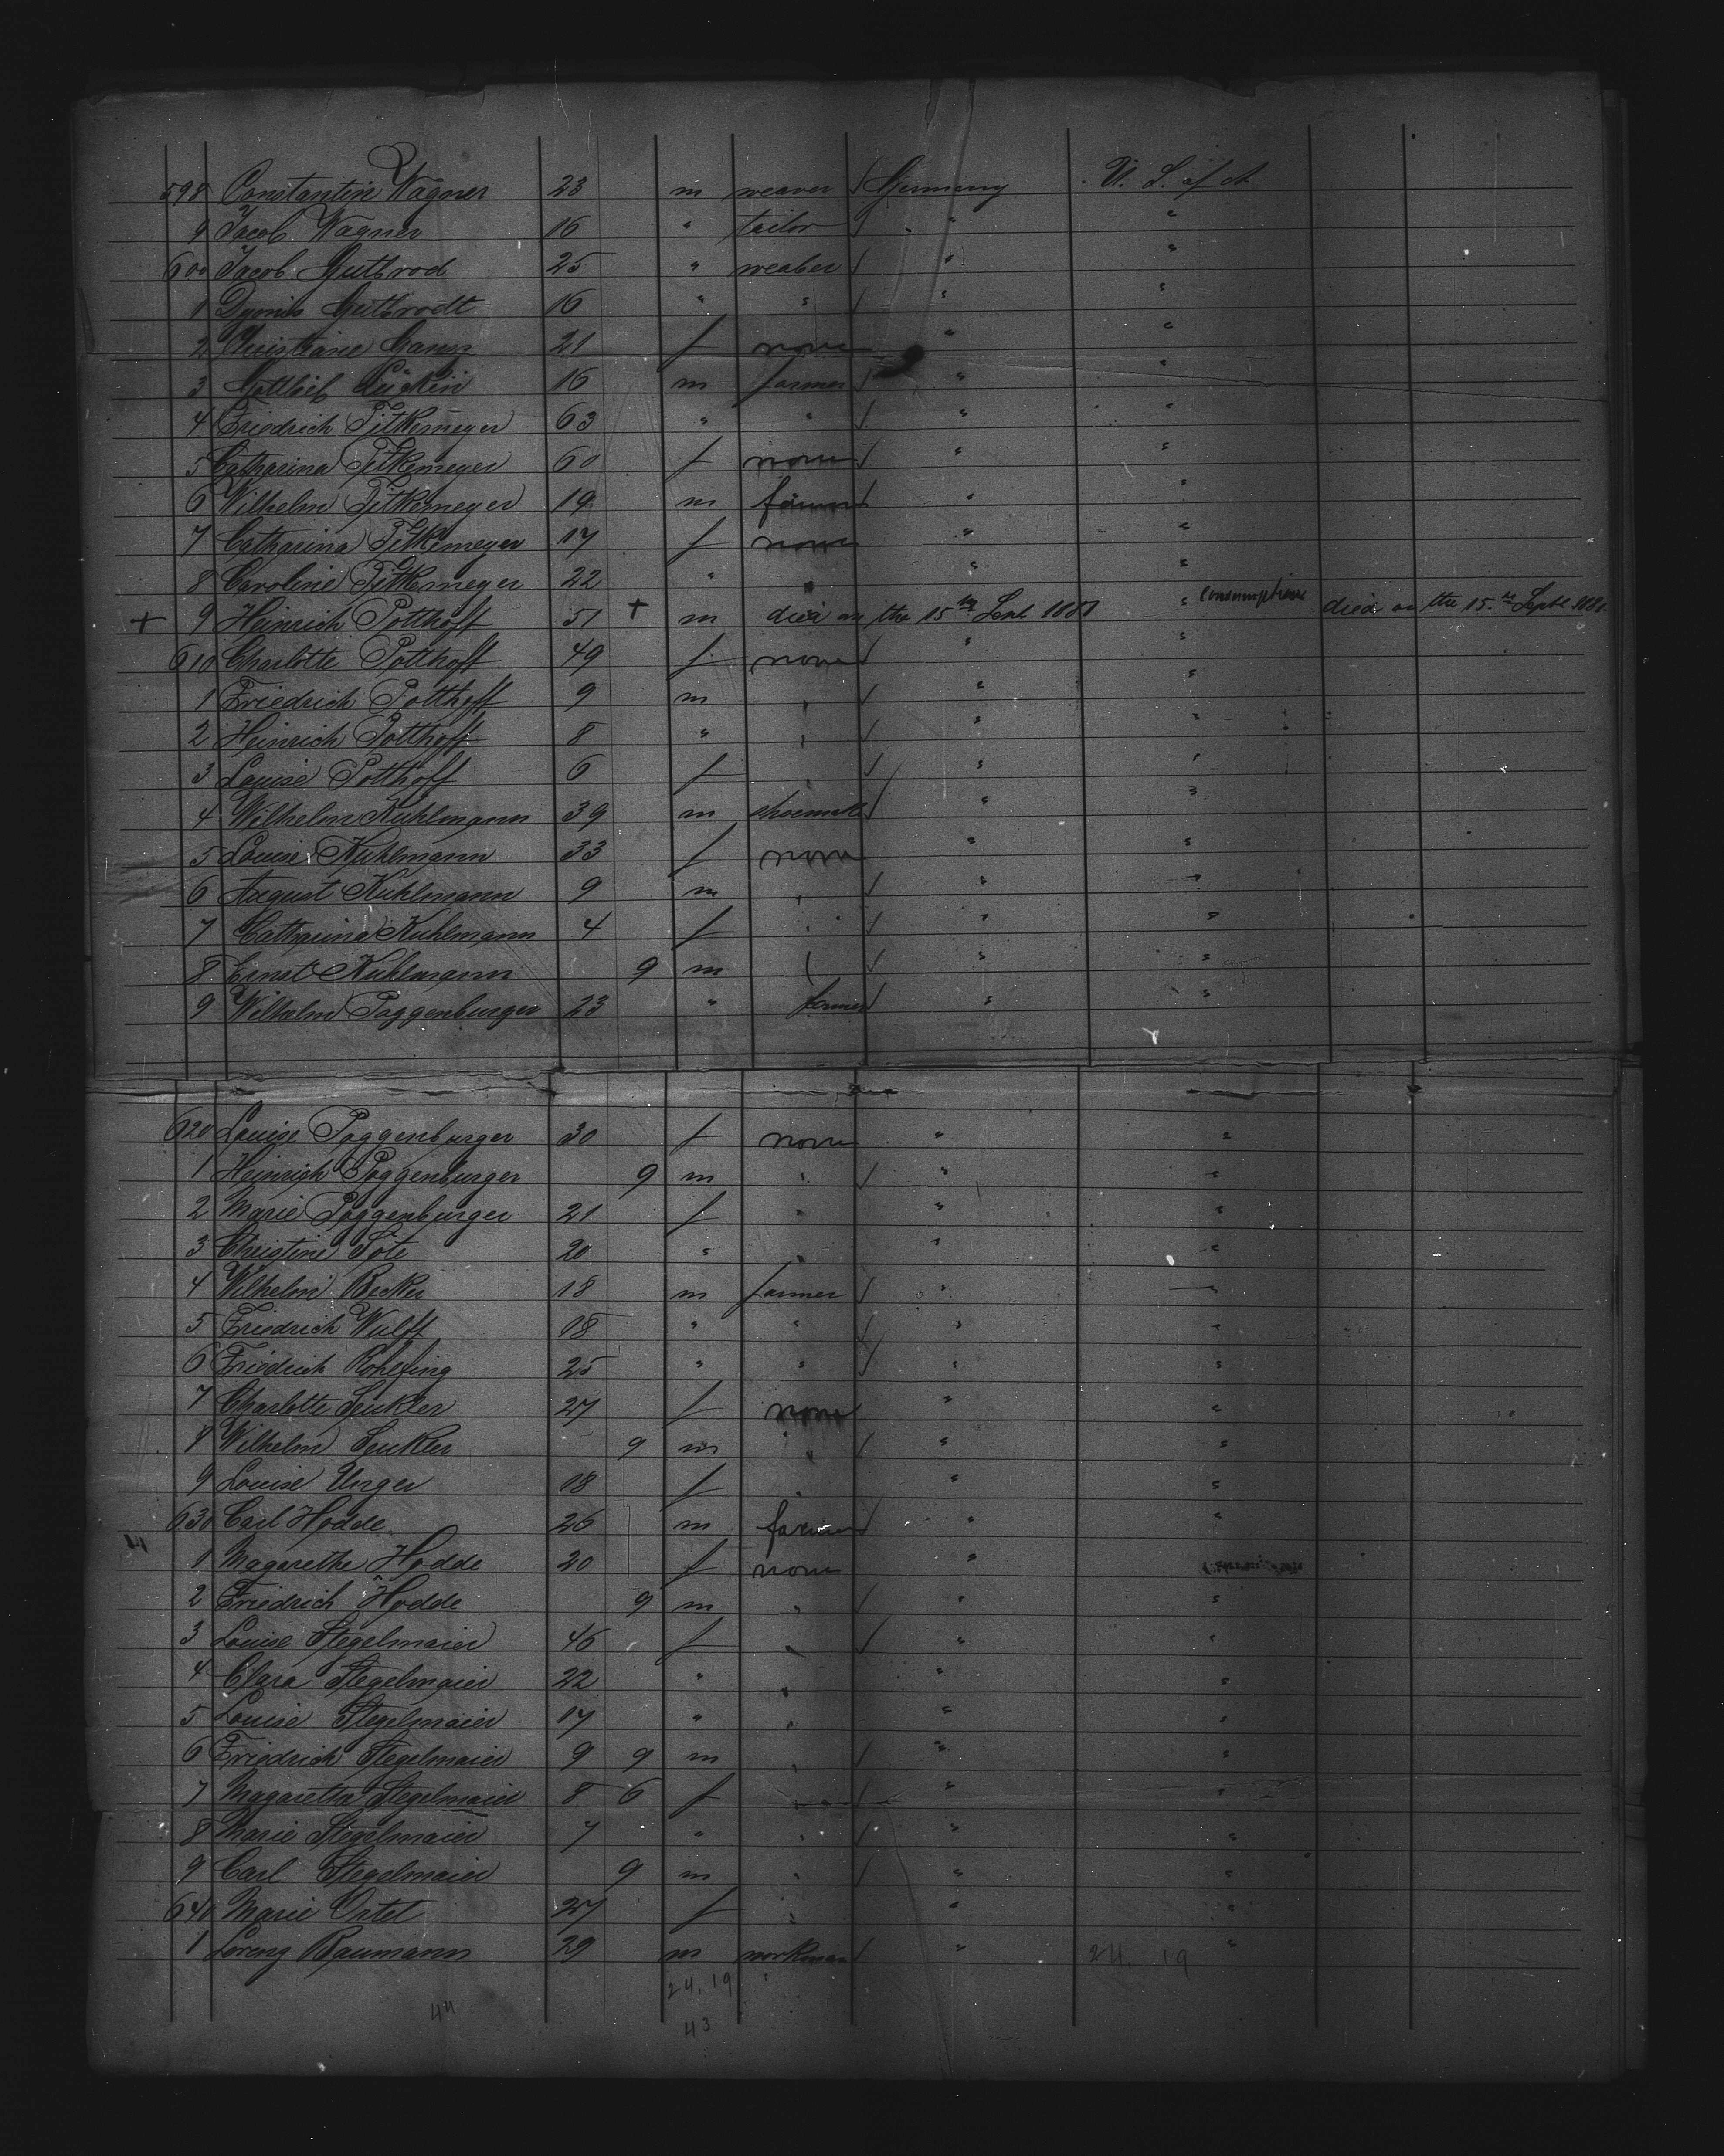 598 Constantin Wagner 23 m weaver Germany U. S. of A
9 Jacob Wagner 16 " tailor " "
600 Jacob Guthrod 25 " weaber " "
1 Dyonis Guthrodt 16 " " " "
2 Christiane Ganz 21 f none " "
3 Gottlieb 16 m farmer " "
4 Friedrich Titkemeyer 63 " " " "
5 Catharina Titkemeyer 60 f none " "
6 Wilhelm Titkemeyer 19 m farmer " "
7 Catharina Titkemeyer 17 f none " "
8 Caroline Titkemeyer 22 " " " "
+ 9 Heinrich Potthoff 51 + m died on the 15th Sept 1881 " Consumption died on the 15th Sept 1881
610 Charlotte Potthoff 49 f none " "
1 Friedrich Potthoff 9 m " " "
2 Heinrich Potthoff 8 " " " "
3 Louise Potthoff 6 f " " "
4 Wilhelm Kuhlmann 39 m shoemak " "
5 Louise Kuhlmann 33 f none " "
6 August Kuhlmann 9 m " " "
7 Catharina Kuhlmann 4 f " " "
8 Ernst Kuhlmann 9 m " " "
9 Wilhelm Poggenburger 23 " farmer " "
620 Louise Poggenburger 30 f none " "
1 Heinrich Poggenburger 9 m " " "
2 Marie Poggenburger 21 f " " "
3 Christine Sote 20 " " " "
4 Wilhelm Becker 18 m farmer " "
5 Friedrich Wulff 18 " " " "
6 Friedrich Rohlfing 25 " " " "
7 Charlotte Senkler 27 f none " "
8 Wilhelm Senkler 9 m " " "
9 Louise Unger 18 f " " "
630 Carl Hodde 26 m farmer " "
1 Magarethe Hodde 20 f none "
2 Friedrich Hodde 9 m " " "
3 Louise Stegelmaier 46 f " " "
4 Clara Stegelmaier 22 " " " "
5 Louise Stegelmaier 17 " " " "
6 Friedrich Stegelmaier 9 9 m " " "
7 Magaretha Stegelmaier 8 6 f " " "
8 Marie Stegelmaier 7 " " " "
9 Carl Stegelmaier 9 m " " "
640 Marie Ortel 27 f " " "
1 Lorenz Baumann 29 m workman " "
24. 19 24. 19
44 43